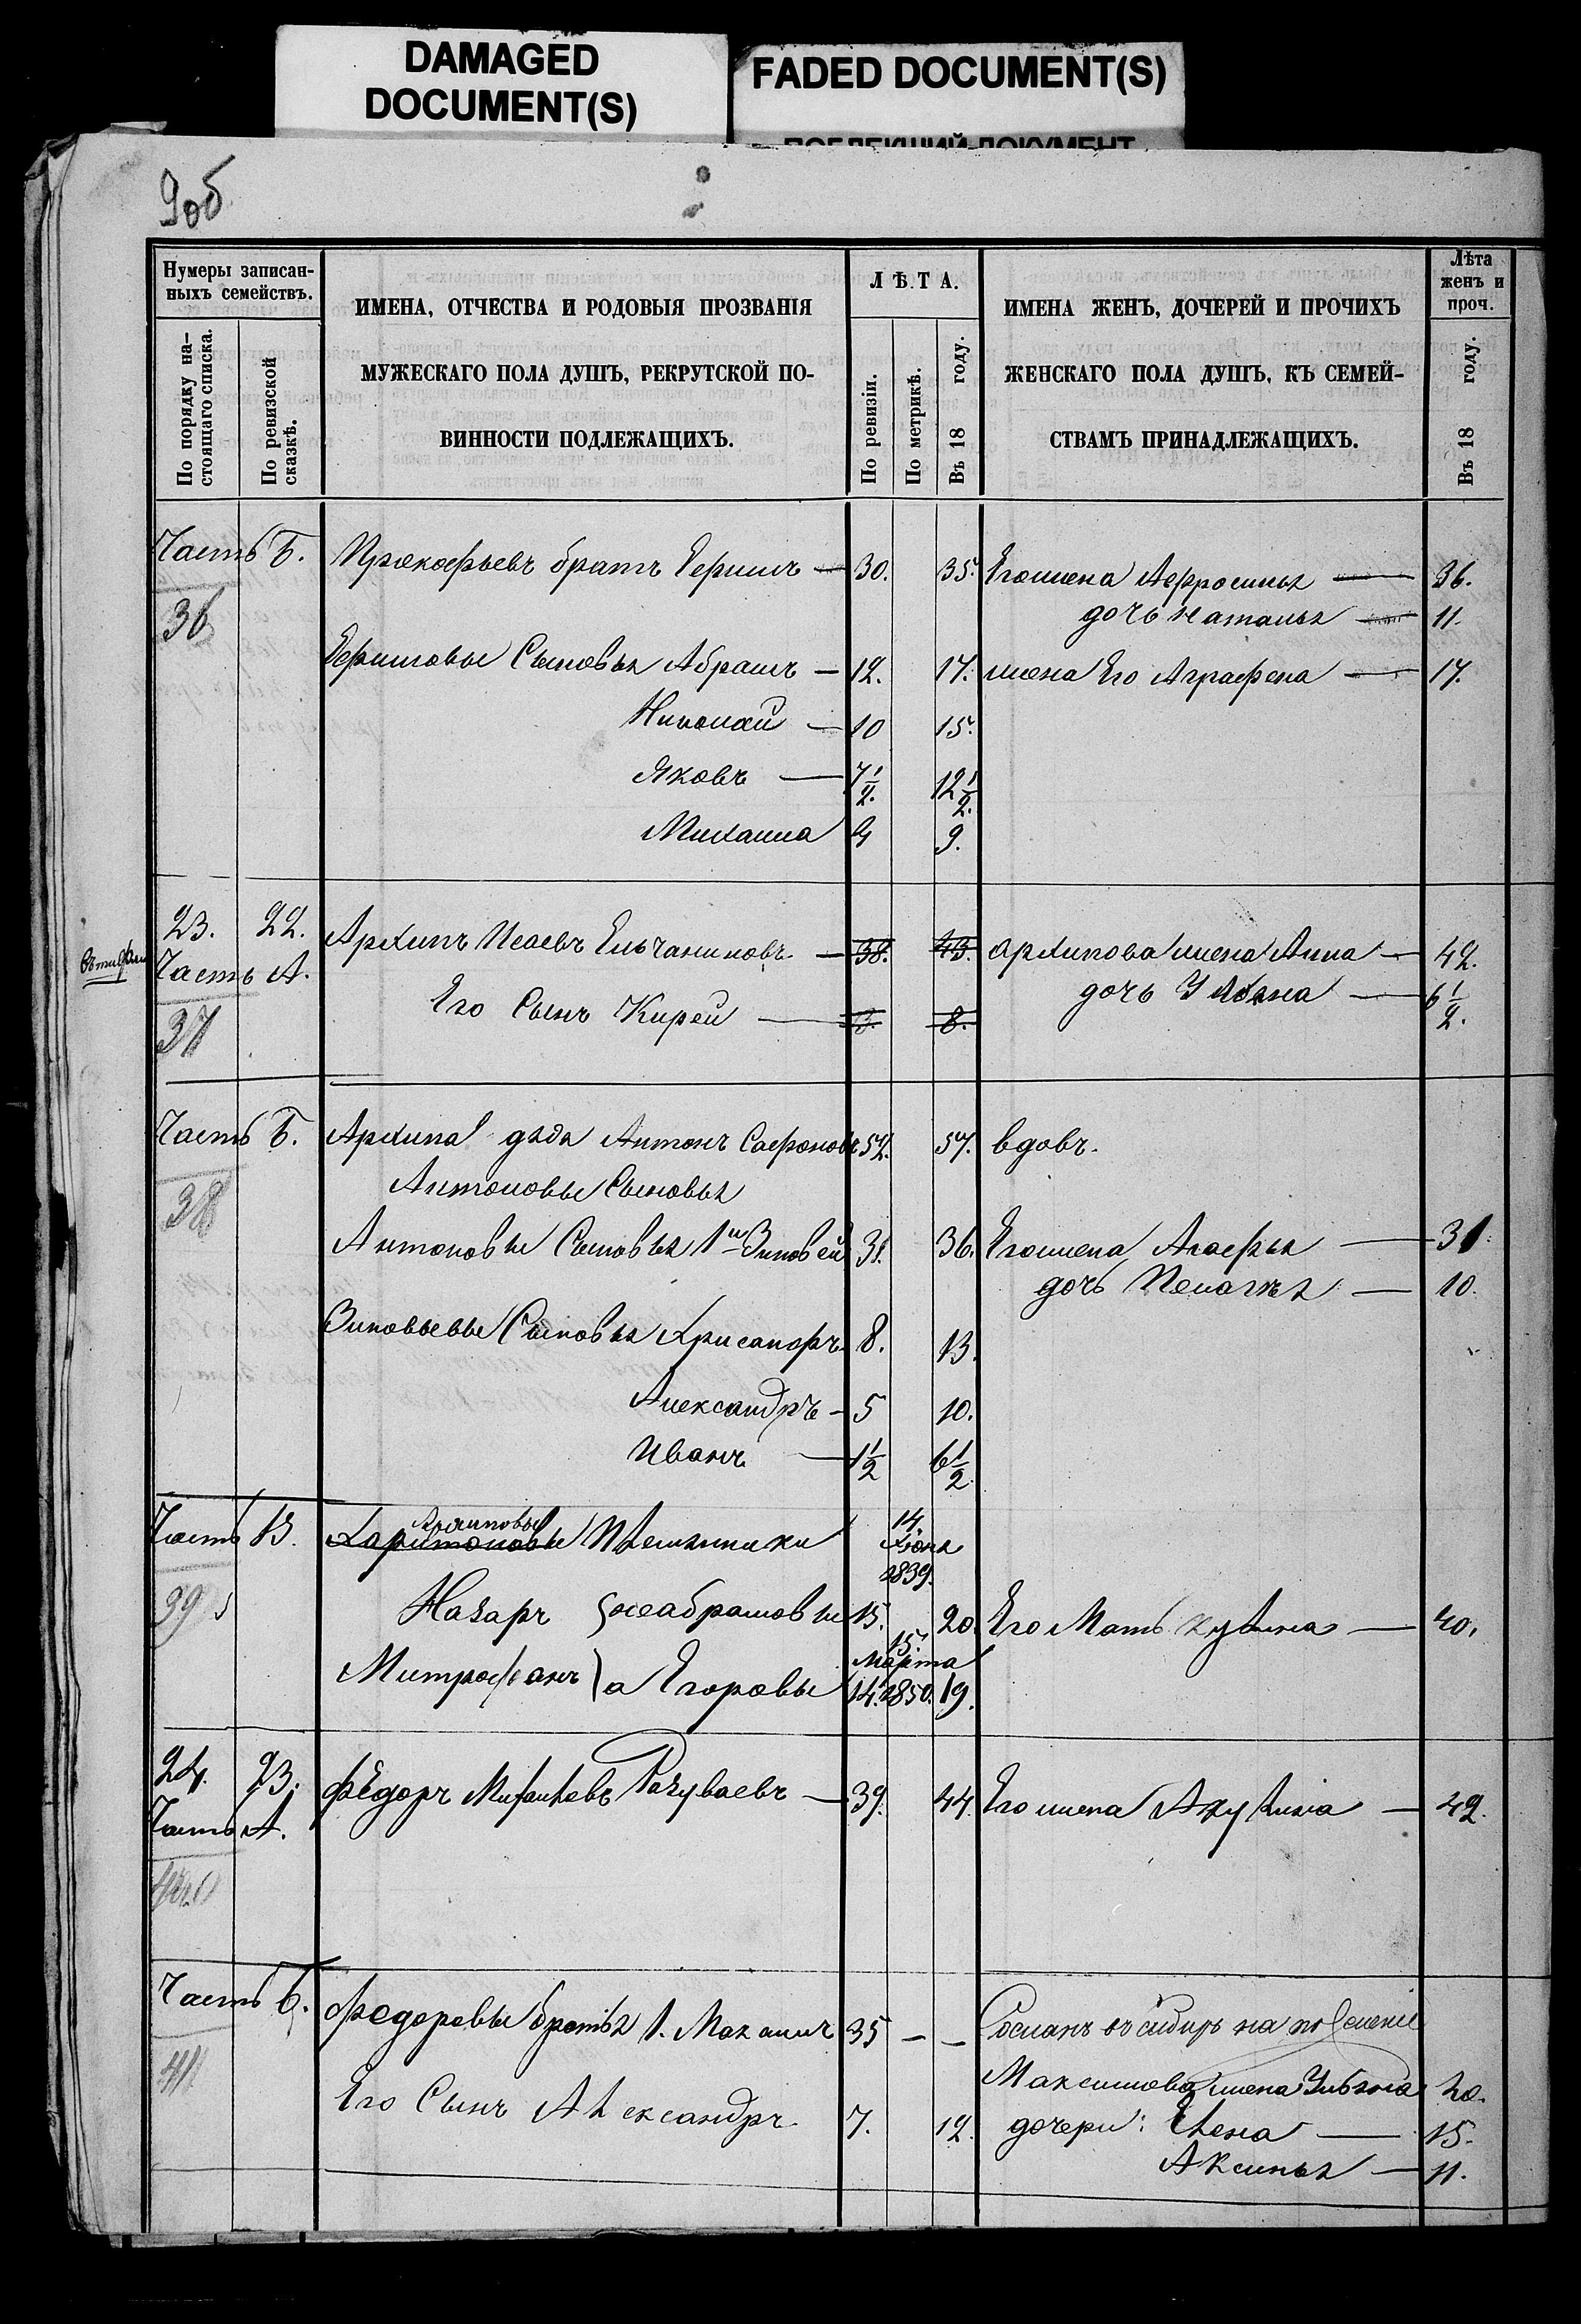 DAMAGED
DOCUMENT(S)
FADED DOCUMENT(S)
9об
Нумеры записан-
ныхъ семействъ.
По порядку на-
стоящаго списка.
По ревизской
сказкѣ.
ИМЕНА, ОТЧЕСТВА И РОДОВЫЯ ПРОЗВАНІЯ
МУЖЕСКАГО ПОЛА ДУШЪ, РЕКРУТСКОЙ ПО-
ВИННОСТИ ПОДЛЕЖАЩИХЪ.
ЛѢТА.
По ревизіи.
По метрикѣ.
Въ 18 году.
ИМЕНА ЖЕНЪ, ДОЧЕРЕЙ И ПРОЧИХЪ
ЖЕНСКАГО ПОЛА ДУШЪ, КЪ СЕМЕЙ-
СТВАМЪ ПРИНАДЛЕЖАЩИХЪ.
Лѣта
женъ и
проч.
Въ 18 году.
Часть Б. Прокофьевъ братъ Ефимъ — 30. 35. Его жена Афросинья — 36.
36 дочь Наталья — 11.
Ефимовы Сыновья Абрамъ — 12. 17. жена Его Аграфена — 17.
Николай — 10 15.
Яковъ — 7 1/2. 12 1/2.
Михаила 4 9.
23. 22. Архипъ Исаевъ Ельчаниновъ — 38. 43. Архипова жена Анна — 42.
Часть А. дочь Ульяна — 6 1/2.
37 Его Сынъ Кирей — 3. 8.
Часть Б. Архипа дядя Антонъ Сафоновъ 52. 57. вдовъ.
38 Антоновы Сыновья
Антоновы Сыновья 1й Зиновей 31. 36. Его жена Агафья — 31.
дочь Пелагея — 10.
Зиновьевы Сыновья Хрисанфъ 8. 13.
Александръ — 5 10.
Иванъ — 1 1/2 6 1/2
Архиповы
Часть В. Харитоновы Племянники 14. Іюня 1839.
39 Назаръ Абрамовы 15. 20. Его Мать Акулина — 40.
15. Марта
Митрофанъ а Егоровы 14. 1850. 19.
24. 23. Федоръ Михайловъ Разуваевъ — 39. 44. Его жена Акулина — 42.
Часть А.
40
Часть Б. Федоровы братья 1. Максимъ 35 — — Сосланъ въ сибирь на поселение
41 Максимова жена Ульяна 40.
Его Сынъ Александръ. 7. 12. дочери: Елена — 15.
Аксинья — 11.